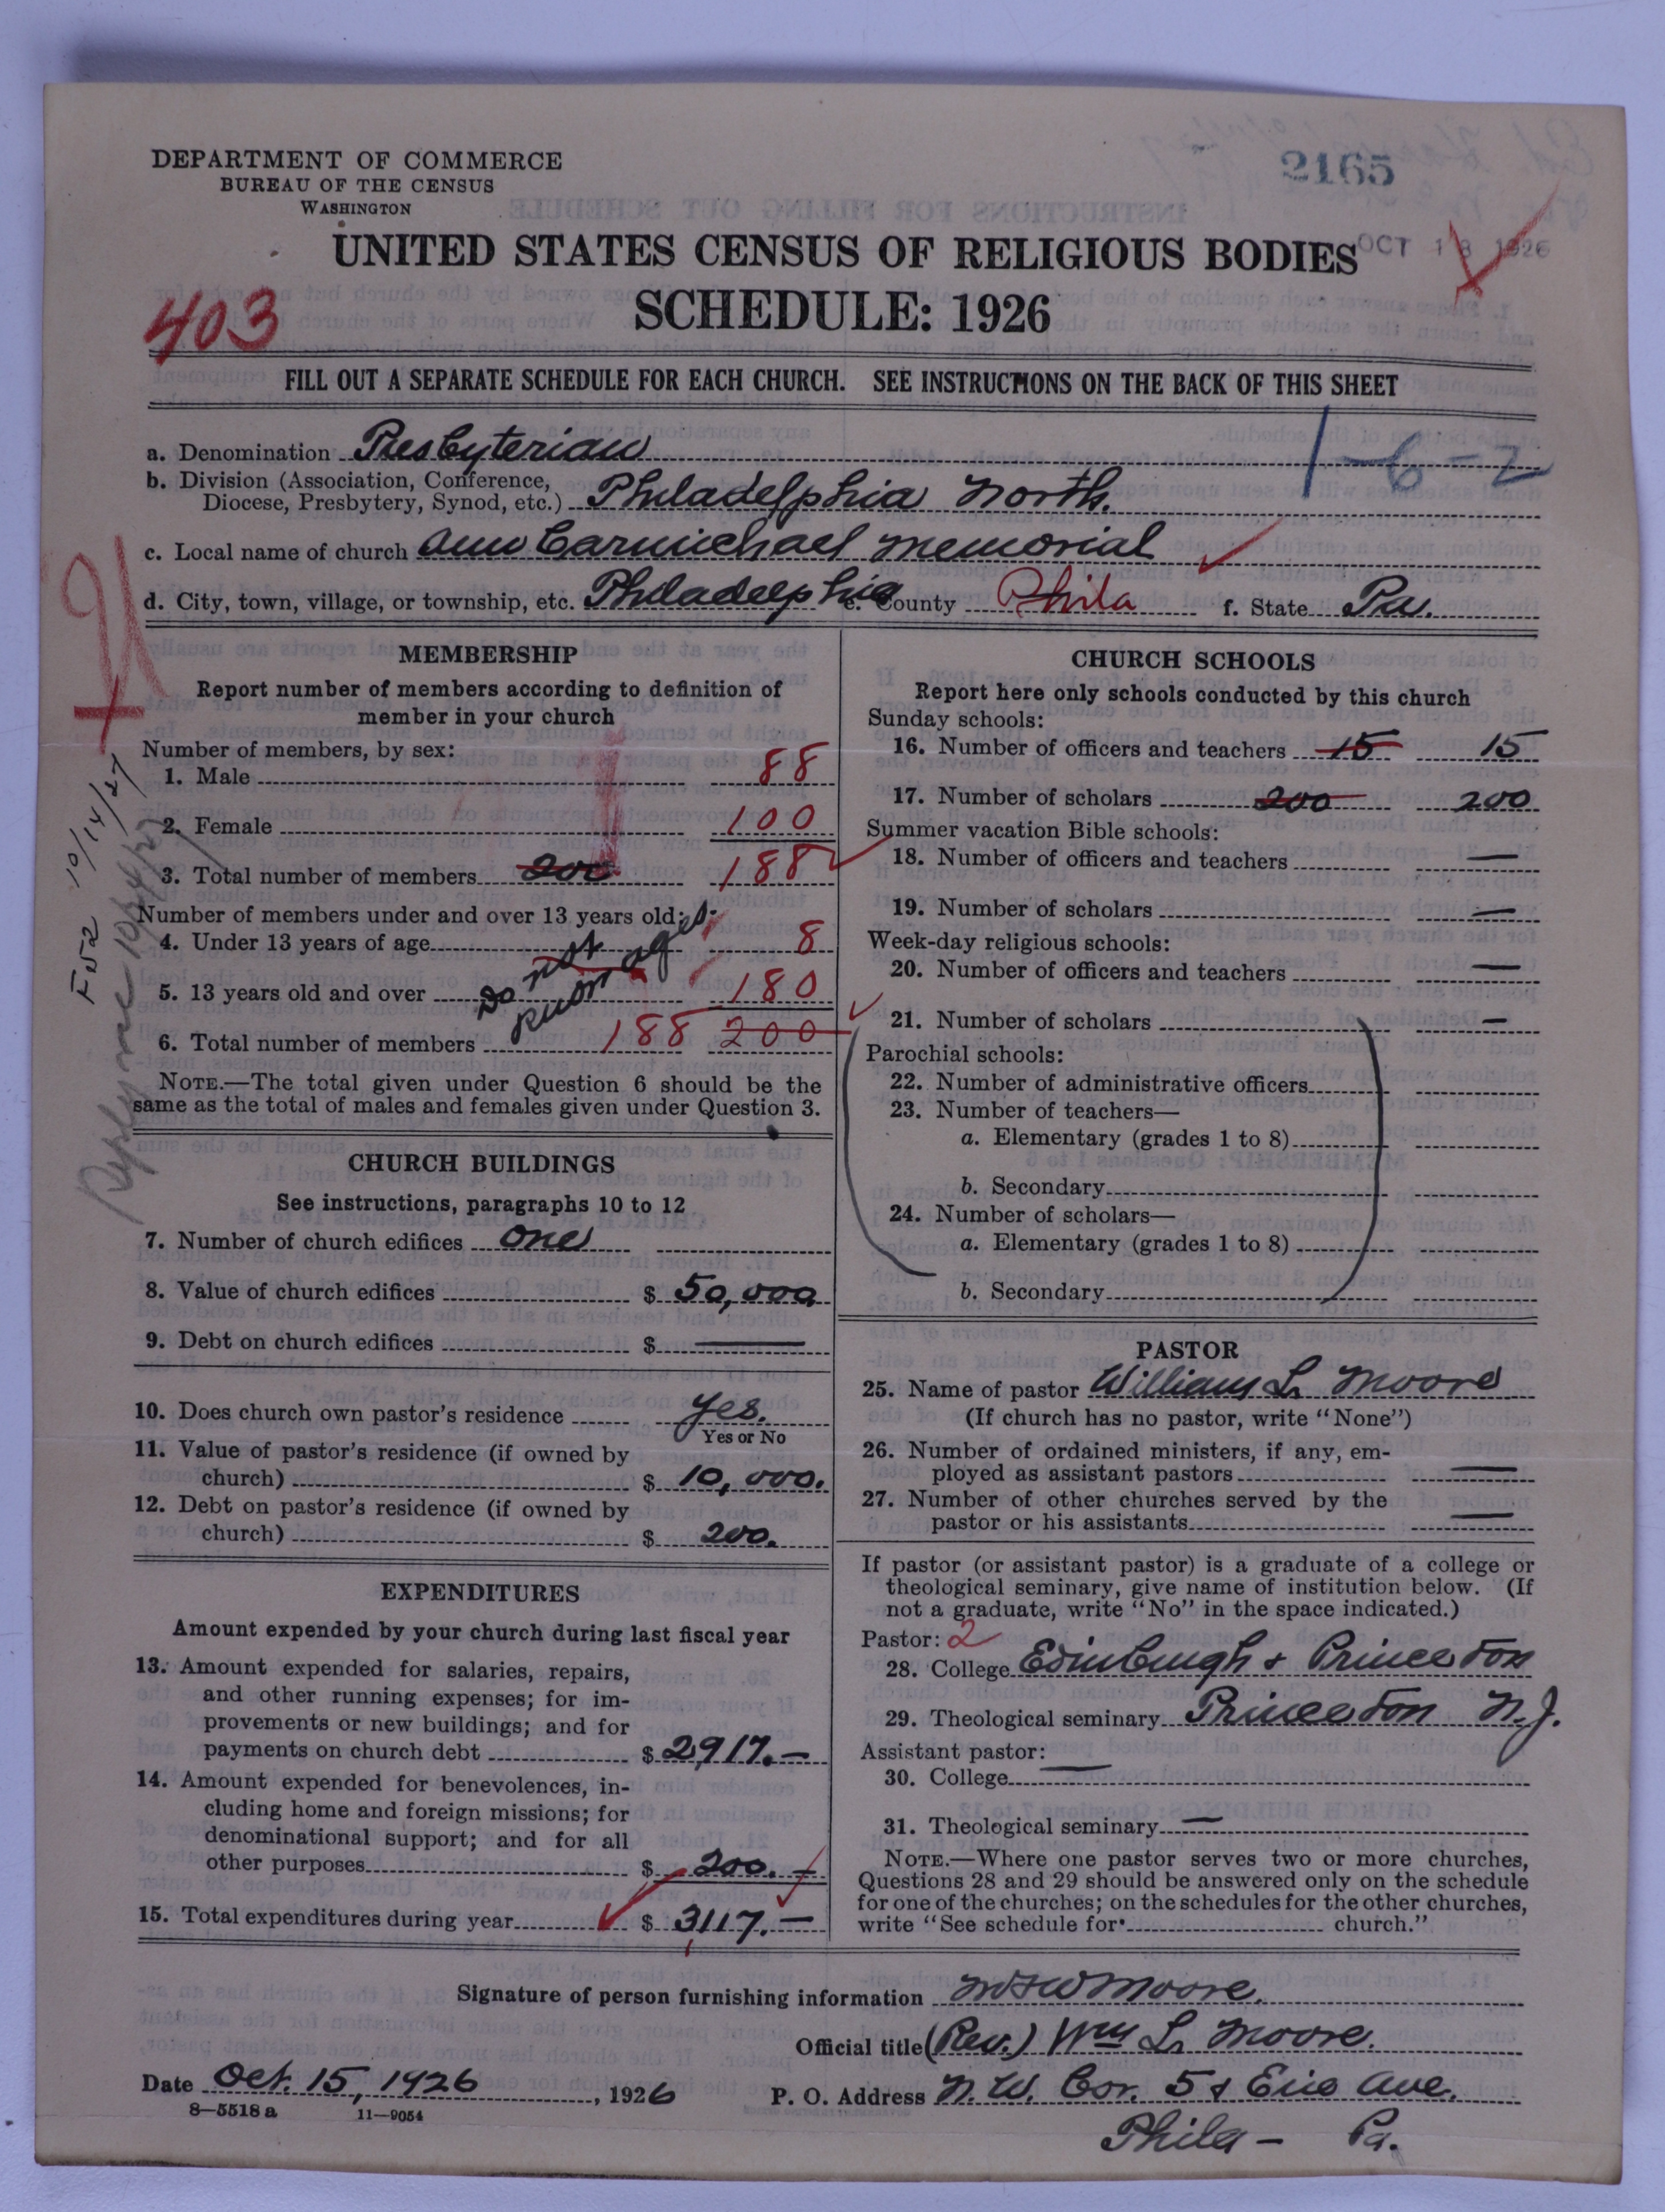 DEPARTMENT OF COMMERCE
BUREAU OF THE CENSUS
WASHINGTON
2165
OCT 18 1926
UNITED STATES CENSUS OF RELIGIOUS BODIES
SCHEDULE: 1926
403
FILL OUT A SEPARATE SCHEDULE FOR EACH CHURCH. SEE INSTRUCTIONS ON THE BACK OF THIS SHEET
1-6-2
a. Denomination Presbyterian
b. Division (Association, Conference,
Diocese, Presbytery, Synod, etc.) Philadelphia North.
c. Local name of church Ann Carmichael Memorial
d. City, town, village, or township, etc. Philadelphia e. County Phila f. State Pa.
MEMBERSHIP
Report number of members according to definition of
member in your church
Number of members, by sex:
1. Male 88
2. Female 100
3. Total number of members 200 188
Number of members under and over 13 years old:
4. Under 13 years of age 8
5. 13 years old and over 180
Do not
know ages
6. Total number of members 188 200
NOTE.—The total given under Question 6 should be the
same as the total of males and females given under Question 3.
10/14/27
F52
Reply
CHURCH BUILDINGS
See instructions, paragraphs 10 to 12
7. Number of church edifices One
8. Value of church edifices $ 50,000
9. Debt on church edifices $ —
10. Does church own pastor's residence Yes.
Yes or No
11. Value of pastor's residence (if owned by
church) $ 10,000.
12. Debt on pastor's residence (if owned by
church) $ 200.
EXPENDITURES
Amount expended by your church during last fiscal year
13. Amount expended for salaries, repairs,
and other running expenses; for im-
provements or new buildings; and for
payments on church debt $ 2,917.—
14. Amount expended for benevolences, in-
cluding home and foreign missions; for
denominational support; and for all
other purposes $ 200.—
15. Total expenditures during year $ 3,117.—
CHURCH SCHOOLS
Report here only schools conducted by this church
Sunday schools:
16. Number of officers and teachers 15 15
17. Number of scholars 200 200
Summer vacation Bible schools:
18. Number of officers and teachers —
19. Number of scholars —
Week-day religious schools:
20. Number of officers and teachers —
21. Number of scholars —
Parochial schools:
22. Number of administrative officers
23. Number of teachers—
a. Elementary (grades 1 to 8)
b. Secondary
24. Number of scholars—
a. Elementary (grades 1 to 8)
b. Secondary
PASTOR
25. Name of pastor William L. Moore
(If church has no pastor, write "None")
26. Number of ordained ministers, if any, em-
ployed as assistant pastors —
27. Number of other churches served by the
pastor or his assistants —
If pastor (or assistant pastor) is a graduate of a college or
theological seminary, give name of institution below. (If
not a graduate, write "No" in the space indicated.)
Pastor: 2
28. College Edinburgh & Princeton
29. Theological seminary Princeton N.J.
Assistant pastor:
30. College —
31. Theological seminary —
NOTE.—Where one pastor serves two or more churches,
Questions 28 and 29 should be answered only on the schedule
for one of the churches; on the schedules for the other churches,
write "See schedule for church."
Signature of person furnishing information Moore.
Official title (Rev.) Wm L. Moore.
Date Oct. 15, 1926, 1926 P. O. Address N. W. Cor. 5 & Erie Ave.
Phila — Pa.
8—5518 a 11—9054